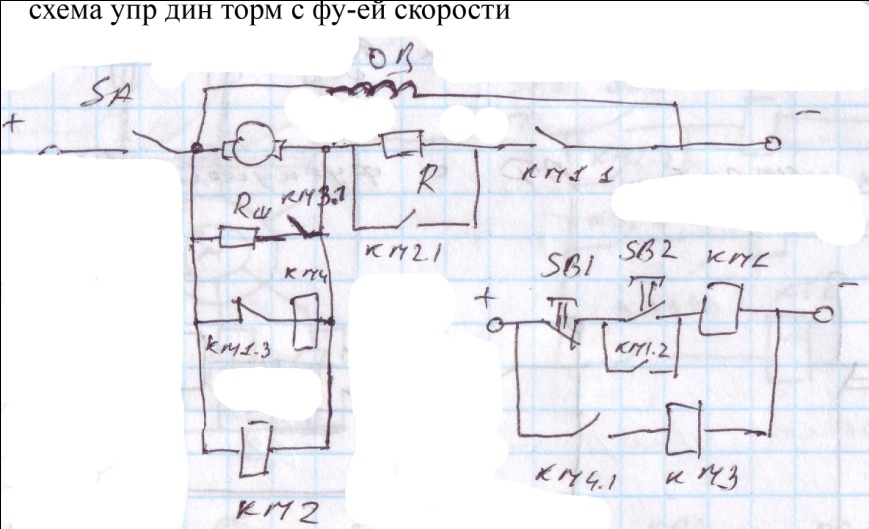 схема упр дин торм с фу-ей скорости
ОВ
SA
+
-
Rш
КМ3.1
R
КМ1.1
КМ2.1
КМ4
КМ1.3
КМ2
SB1
SB2
КМ1
+
-
КМ1.2
КМ4.1
КМ3